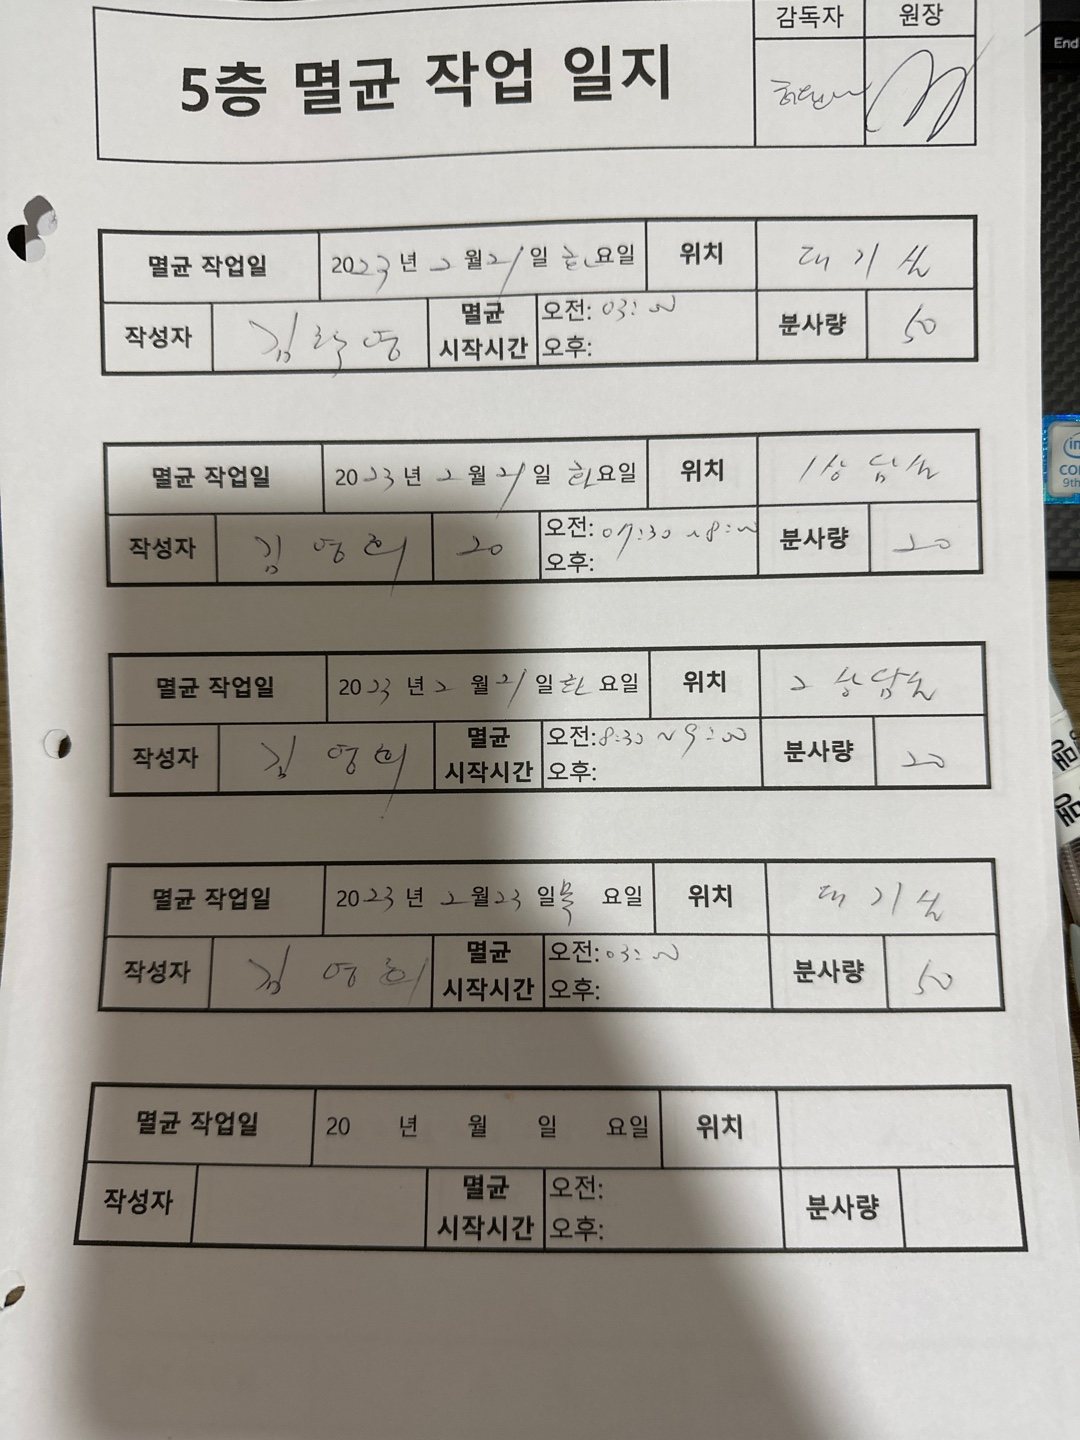 감독자 원장
5층 멸균 작업 일지
멸균 작업일 2023년 2월 21일 화요일 위치 대기실
작성자 멸균 시작시간 오전: 03:00 오후: 분사량 50
멸균 작업일 2023년 2월 21일 화요일 위치 1상담실
작성자 김영희 20 오전: 07:30 ~8:00 오후: 분사량 20
멸균 작업일 2023년 2월 21일 화요일 위치 2상담실
작성자 김영희 멸균 시작시간 오전: 8:30 ~ 9:00 오후: 분사량 20
멸균 작업일 2023년 2월 23일 목요일 위치 대기실
작성자 김영희 멸균 시작시간 오전: 03:00 오후: 분사량 50
멸균 작업일 20 년 월 일 요일 위치
작성자 멸균 시작시간 오전: 오후: 분사량
End
9th